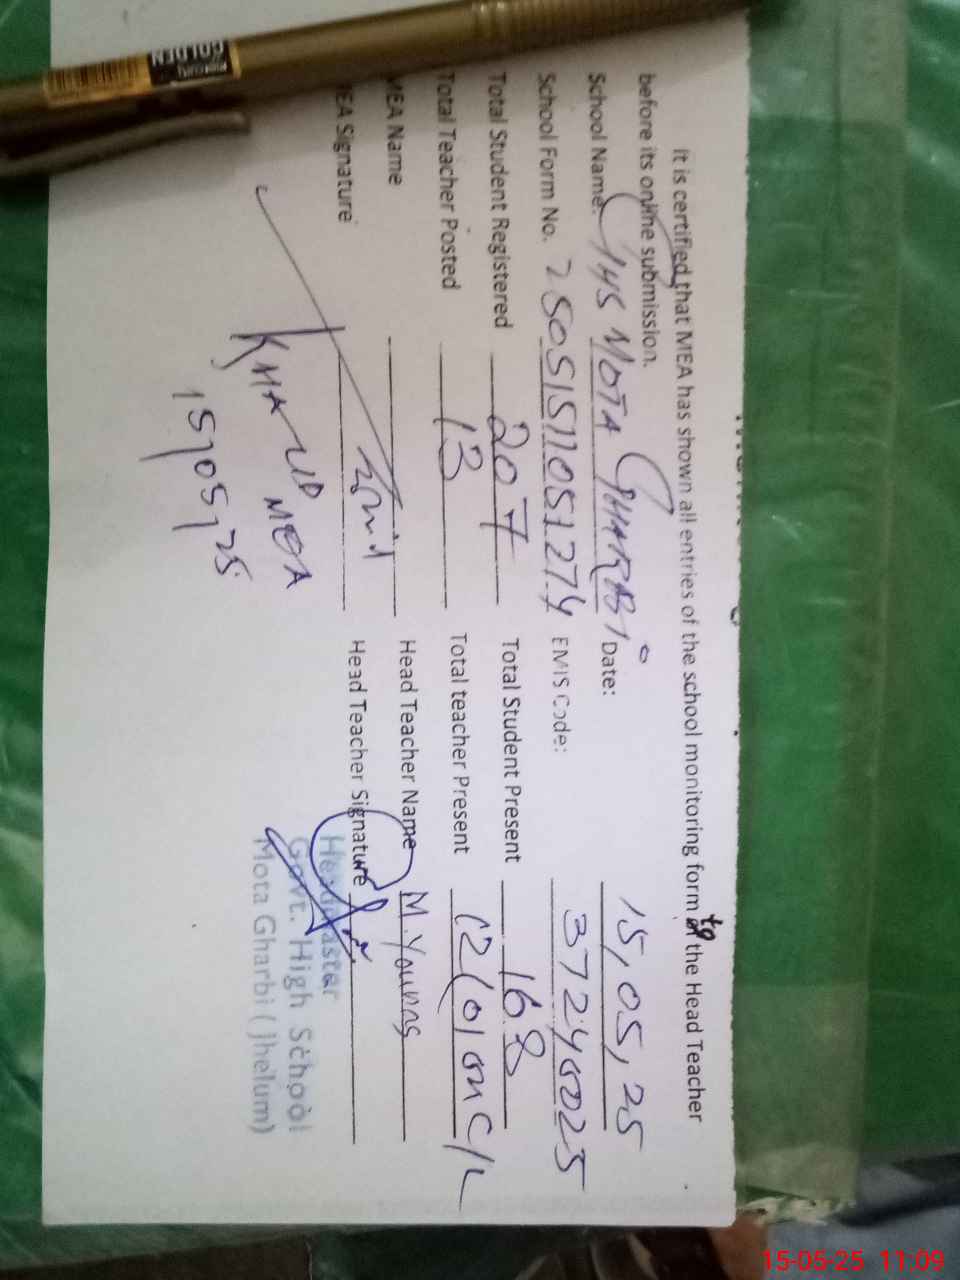 GOLDEN
It is certified that MEA has shown all entries of the school monitoring form to the Head Teacher
before its online submission.
School Name: GHS MOTA GHARBI Date: 15,05,25
School Form No. EMIS Code: 37240025
Total Student Registered 207 Total Student Present 168
Total Teacher Posted 13 Total teacher Present 12(01 on C/L
MEA Name Head Teacher Name M. Younas
MEA Signature Head Teacher Signature
MEA
15/05/25
Headmaster
Govt. High School
Mota Gharbi (Jhelum)
15-05-25 11:09